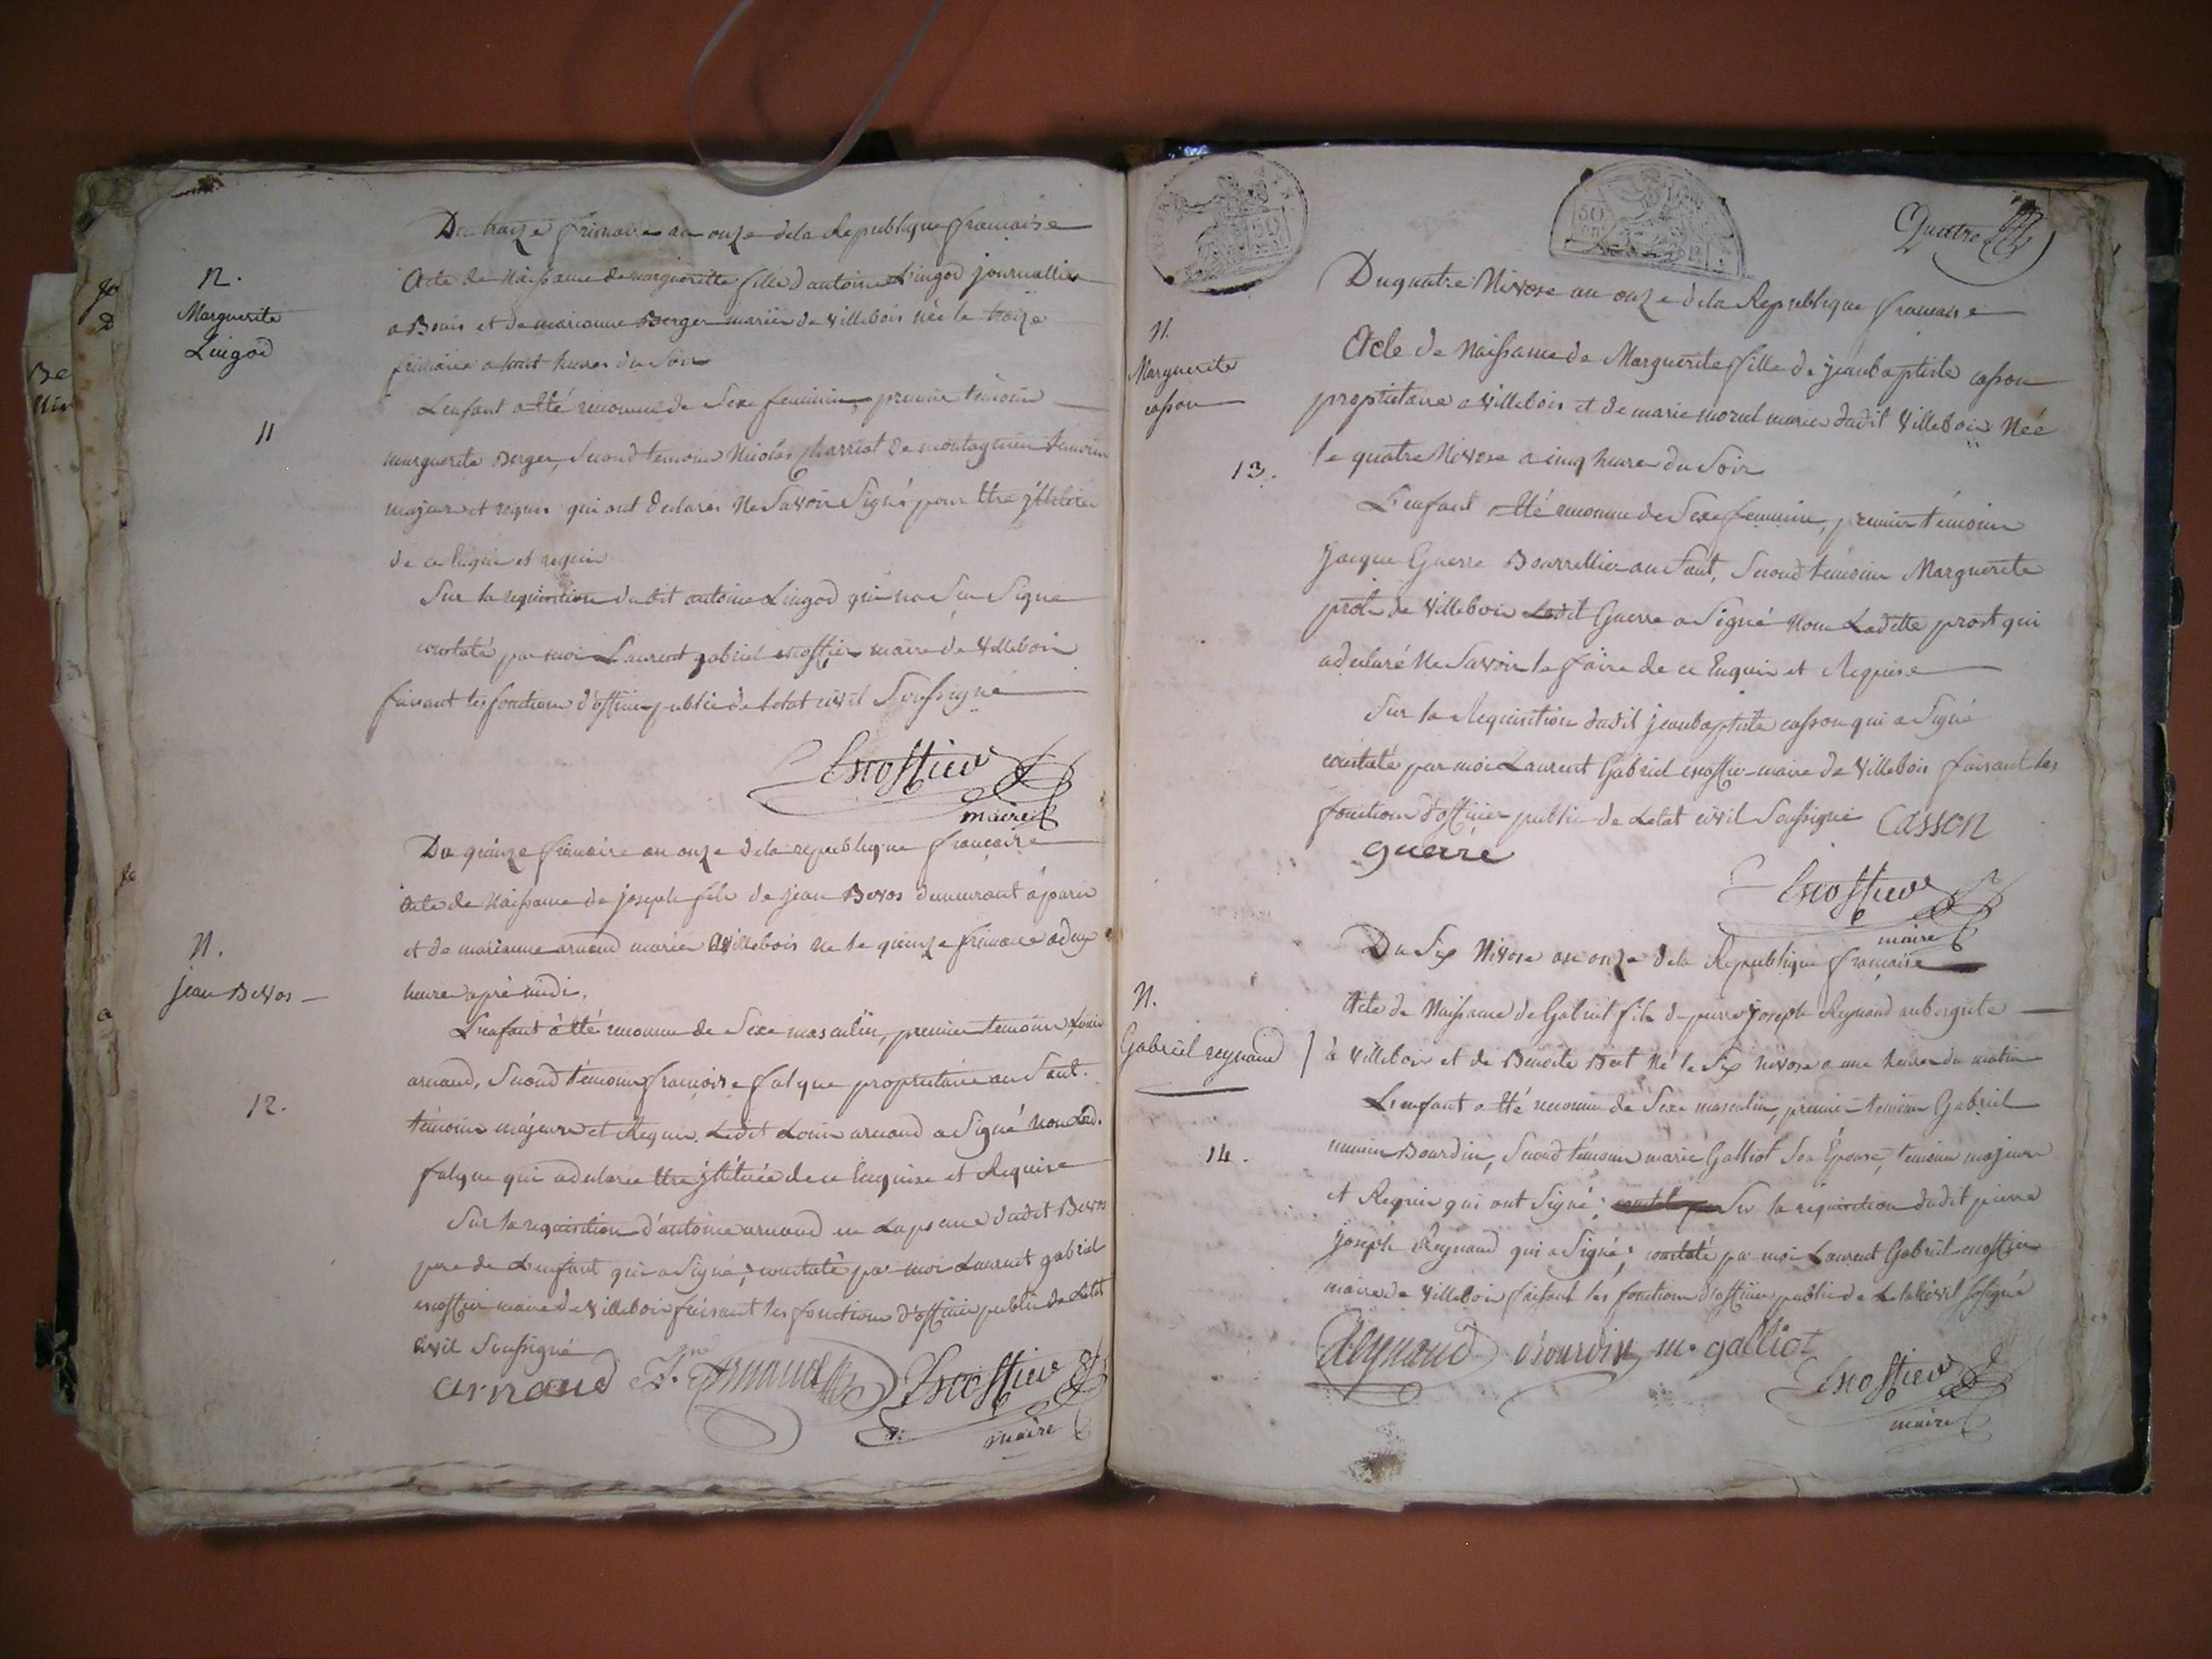 Du treize frimaire an onze dela Republique francaise
N.
Marguerite
Lingod
11
Acte de Naissance de marguerite fille d'antoine Lingod journallier
a Bouis et de marianne Berger mariés de Villebois née le treize
frimaire a huit heures du Soir
L'enfant a été reconnu de Sexe feminin, premier témoin
marguerite Berger, Second temoin Nicolas Charriot de montagnieu temoins
majeurs et requis qui ont declarés Ne Savoir Signé pour être jlliterés
de ce enquis et requis
Sur la requisition dudit antoine Lingod qui na Su Signe
constaté par moi Laurent gabriel escoffier maire de Villebois
faisant les fonctions d'officier public de letat civil Soussigné
Escoffier
maire
Du quinze frimaire an onze dela republique francaise
N.
jean Bevos
12.
Acte de Naissance de joseph fils de jean Bevos demeurant à paris
et de marianne arnaud mariés a Villebois né le quinze frimaire a deux
heure aprè midi.
L'enfant à été reconnu de Sexe masculin, premier temoin Louis
arnaud, Second témoin francoise falque propriétaire au Saut.
témoins májeurs et Requis. Ledit Louis arnaud a Signé non Lad.
falque qui a declarée être jllitérée de ce Enquise et Requise
Sur la requisition d'antoine arnaud en Lapsence dudit Bevos
pere de L'enfant qui a Signé; constaté par moi Laurent gabriel
escoffier maire de Villebois faisant les fonctions d'officier public de Letat
civil Soussigné
arnaud Arnaud Escoffier
maire
Quatre
Du quatre Nivose an onze dela Republique francaise
N.
Marguerite
casson
13.
Acte de Naissance de Marguerite fille de jean baptiste casson
propriétaire a Villebois et de marie morel mariés dudit Villebois Née
le quatre Nivose a cinq heure du Soir
L'enfant a été reconnu de Sexe feminin, premier témoin
jacque Guerre Bourrellier au Saut, Second témoin Marguerite
prost de Villebois Ledit Guerre a Signé Non Ladite prost qui
a declaré Ne Savoir le faire de ce Enquis et Requise
Sur la Requisition dudit jean baptiste casson qui a Signé
constaté par moi Laurent Gabriel escoffier maire de Villebois faisant les
fonctions d'officier public de Letat civil Soussigné Casson
guerre
Escoffier
maire
Du Six Nivose an onze dela Republique francaise
N.
Gabriel reynaud
14.
Acte de Naissance de Gabriel fils de pierre joseph Reynaud aubergiste
à Villebois et de Benoite Né le Six nivose a une heure du matin
L'enfant a été reconnu de Sexe masculin, premier temoin Gabriel
Bourdin, Second témoin marie Galliot Son Épouse, témoins majeurs
et Requis qui ont Signé; Sur la requisition dudit pierre
joseph Reynaud qui a Signé; constaté par moi Laurent Gabriel escoffier
maire de Villebois faisant les fonctions d'officier public de Letat civil Sosigné
Reynaud Bourdin m. galliot
Escoffier
maire